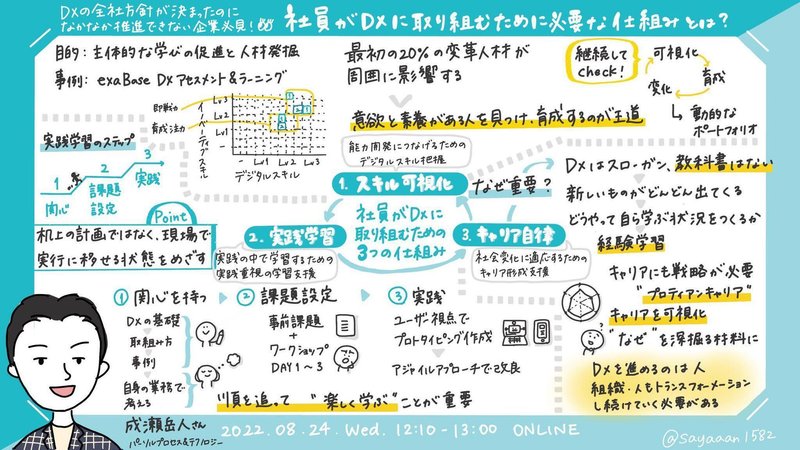 DXの全社方針が決まったのに
なかなか推進できない企業必見!
社員がDXに取り組むために必要な仕組みとは?
目的: 主体的な学びの促進と人材発掘
事例: exaBase DXアセスメント&ラーニング
即戦力
育成注力
イノベーティブスキル
Lv3
Lv2
Lv1
-
- Lv1 Lv2 Lv3
デジタルスキル
最初の20%の変革人材が
周囲に影響する
意欲と素養がある人を見つけ、育成するのが王道
継続して
check!
可視化
育成
変化
動的な
ポートフォリオ
実践学習のステップ
1
関心
2
課題
設定
3
実践
Point
机上の計画ではなく、現場で
実行に移せる状態をめざす
能力開発につなげるための
デジタルスキル把握
1. スキル可視化
社員がDXに
取り組むための
3つの仕組み
2. 実践学習
実践の中で学習するための
実践重視の学習支援
3. キャリア自律
社会変化に適応するための
キャリア形成支援
なぜ重要?
DXはスローガン、教科書はない
新しいものがどんどん出てくる
どうやって自ら学ぶ状況をつくるか
経験学習
キャリアにも戦略が必要
"プロティアンキャリア"
キャリアを可視化
"なぜ"を深掘る材料に
DXを進めるのは人
組織・人もトランスフォーメーション
し続けていく必要がある
① 関心を持つ
DXの基礎
取組み方
事例
自身の業務で
考える
② 課題設定
事前課題
+
ワークショップ
DAY1〜3
③ 実践
ユーザー視点で
プロトタイピング作成
アジャイルアプローチで改良
順を追って "楽しく学ぶ" ことが重要
成瀬岳人さん
パーソルプロセス&テクノロジー
2022.08.24. Wed. 12:10-13:00 ONLINE
@sayaaan1582